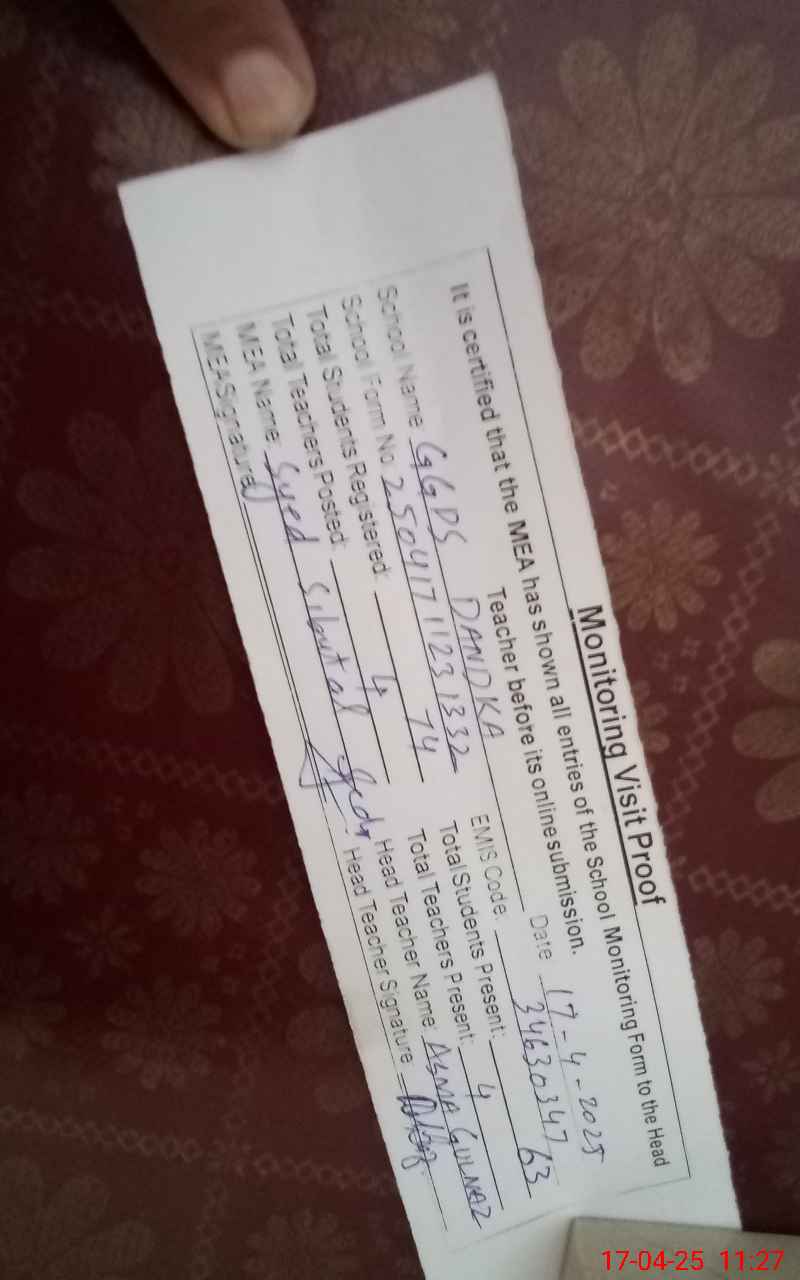 Monitoring Visit Proof
It is certified that the MEA has shown all entries of the School Monitoring Form to the Head
Teacher before its online submission.
Date 17-4-2025
School Name: GGPS DANDKA EMIS Code: 34630347
School Form No. 2504171123 1332 Total Students Present: 63
Total Students Registered: 74 Total Teachers Present: 4
Total Teachers Posted: 4 Head Teacher Name: ASMA GULNAZ
MEA Name: Syed Head Teacher Signature
MEA Signature
17-04-25 11:27